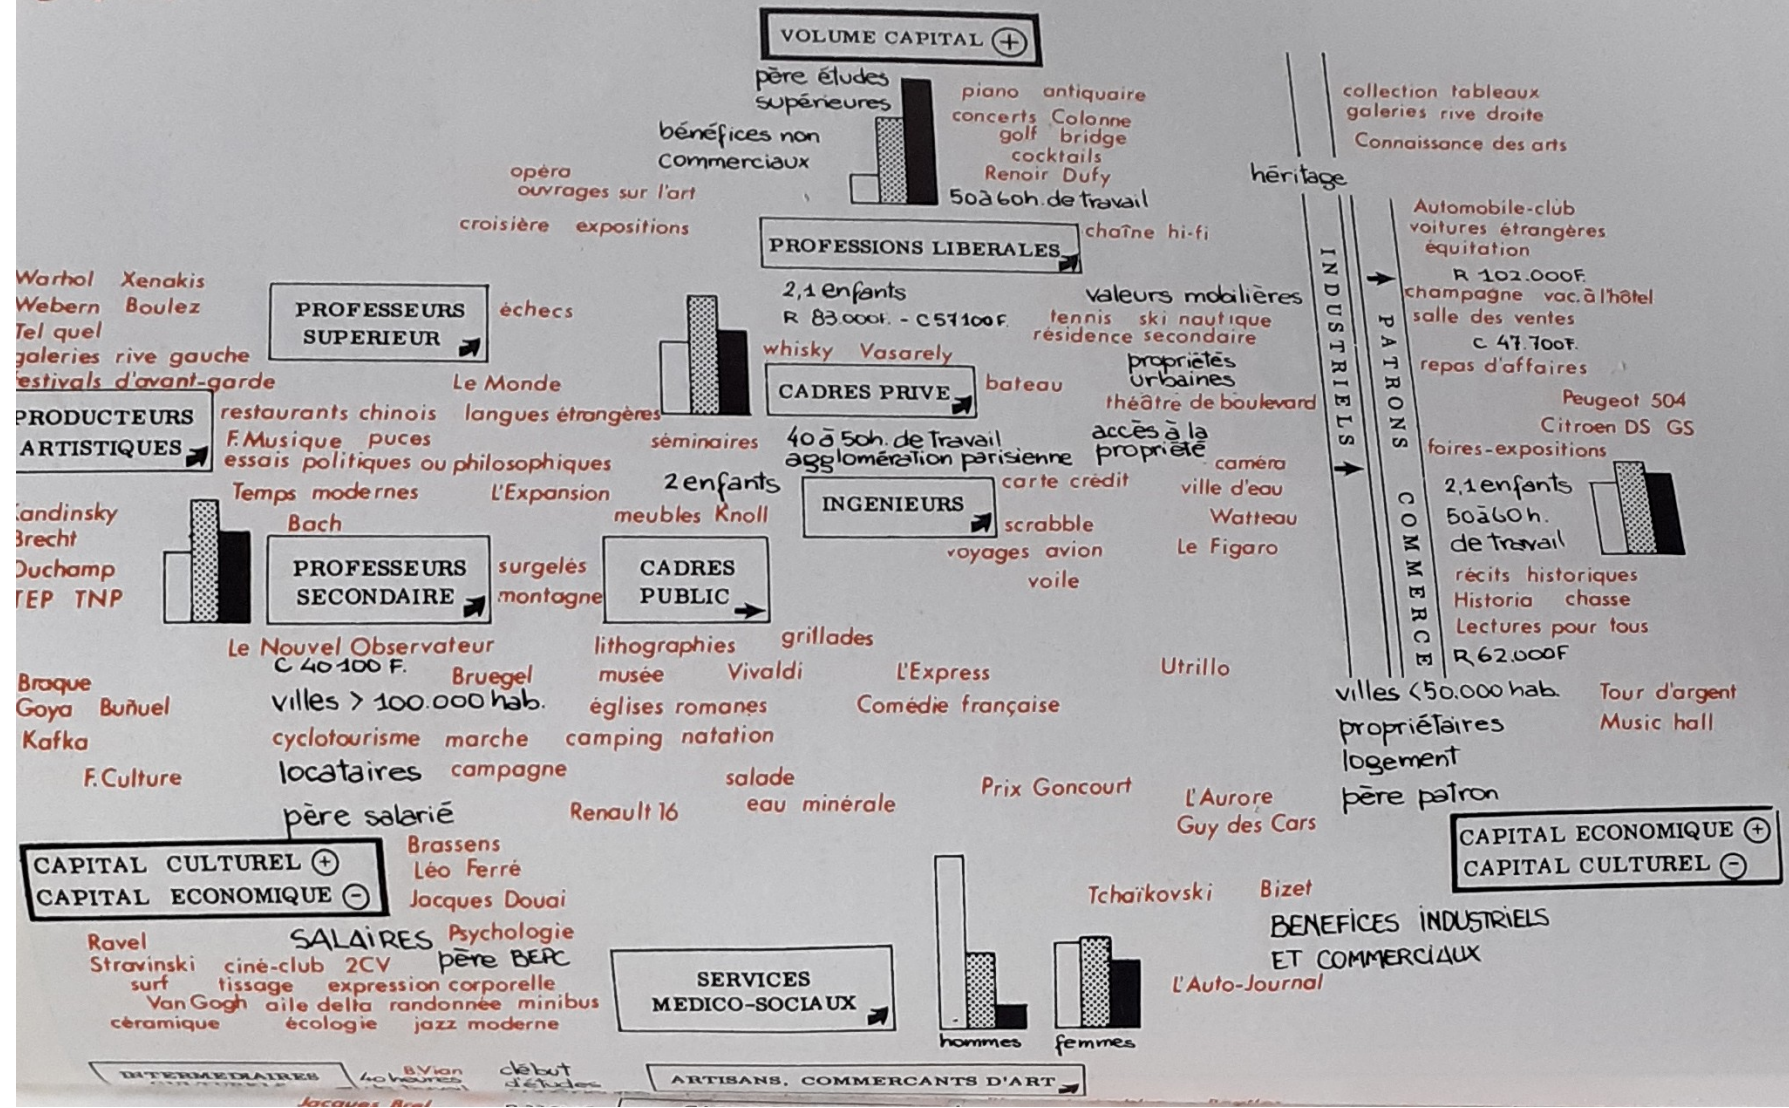 VOLUME CAPITAL +
père études
supérieures
bénéfices non
commerciaux
piano antiquaire
concerts Colonne
golf bridge
cocktails
Renoir Dufy
50 à 60h. de travail
collection tableaux
galeries rive droite
Connaissance des arts
héritage
opéra
ouvrages sur l'art
croisière expositions
PROFESSIONS LIBERALES
chaîne hi-fi
Automobile-club
voitures étrangères
équitation
R 102.000F.
champagne vac. à l'hôtel
salle des ventes
C 47.700F.
repas d'affaires
Peugeot 504
Citroen DS GS
foires-expositions
INDUSTRIELS
PATRONS COMMERCE
Warhol Xenakis
Webern Boulez
Tel quel
galeries rive gauche
festivals d'avant-garde
PROFESSEURS
SUPERIEUR
échecs
2,1 enfants
R 83.000F. - C 57100F.
valeurs mobilières
tennis ski nautique
résidence secondaire
whisky Vasarely
propriétés
urbaines
CADRES PRIVE
bateau
théâtre de boulevard
Le Monde
PRODUCTEURS
ARTISTIQUES
restaurants chinois langues étrangères
F. Musique puces
essais politiques ou philosophiques
séminaires
40 à 50h. de travail
agglomération parisienne
accès à la
propriété
caméra
Temps modernes L'Expansion
2 enfants
meubles Knoll
INGENIEURS
carte crédit
ville d'eau
scrabble
Watteau
voyages avion
Le Figaro
voile
2,1 enfants
50 à 60 h.
de travail
récits historiques
Historia chasse
Lectures pour tous
R 62.000F
Kandinsky
Brecht
Duchamp
TEP TNP
Bach
PROFESSEURS
SECONDAIRE
surgelés
montagne
CADRES
PUBLIC
Le Nouvel Observateur
C 40100 F.
lithographies
grillades
Braque
Goya Buñuel
Kafka
Bruegel
musée Vivaldi
L'Express
Utrillo
villes > 100.000 hab.
églises romanes
Comédie française
villes < 50.000 hab.
Tour d'argent
Music hall
propriétaires
logement
père patron
cyclotourisme marche camping natation
F. Culture
locataires
campagne
salade
eau minérale
Prix Goncourt
L'Aurore
Guy des Cars
père salarié
Renault 16
CAPITAL CULTUREL +
CAPITAL ECONOMIQUE −
CAPITAL ECONOMIQUE +
CAPITAL CULTUREL −
Brassens
Léo Ferré
Jacques Douai
Tchaïkovski Bizet
BENEFICES INDUSTRIELS
ET COMMERCIAUX
L'Auto-Journal
SALAIRES
Psychologie
père BEPC
Ravel
Stravinski ciné-club 2CV
surf tissage expression corporelle
Van Gogh aile delta randonnée minibus
céramique écologie jazz moderne
SERVICES
MEDICO-SOCIAUX
hommes femmes
INTERMEDIAIRES
40 heures
B. Vian
début
d'études
ARTISANS, COMMERCANTS D'ART
Jacques Brel